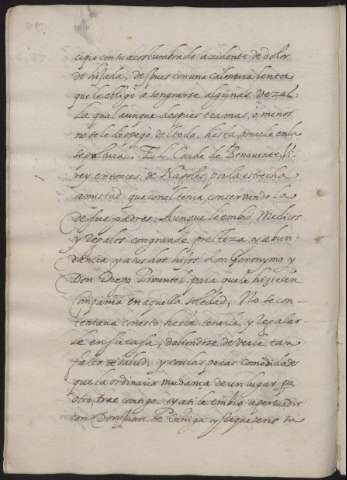 cipio con su acostumbrado accidente de dolor
de hijada, despues con una calentura lenta
que le obligo a sangrarse algunas vezes
la qual aunque despues mas, o menos
no se le despego del todo, hasta la
sepultura. El Conde de Benavente Vi
rey entonces, de Napoles, por la estrecha
amistad que con el tenia conservando la
de sus padres. Aunque le embio Medicos
y regalos con grande presteza, y abun
dancia y a sus dos hijos Don Geronymo y
Don Diego Pimentel para que le hiziesen
compania en aquella soledad, No se con
tentava con esto hasta tenerle, y regalar
le en su casa, doliendose de verle tan
falto de salud, y con las pocas comodidades
que la ordinaria mudança de un lugar a
otro trae consigo, y asi embio a persuadir
con Don Juan de Zuñiga y